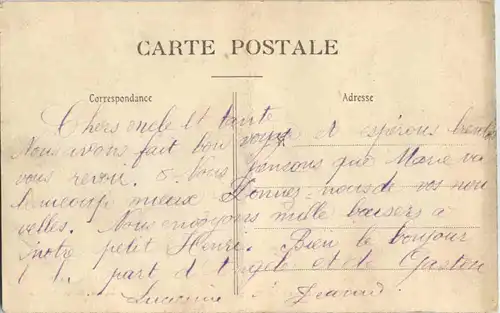 CARTE POSTALE
Correspondance
Adresse
Chers oncle et tante
Nous avons fait bon voyage et espérons bientôt
vous revoir. Nous pensons que Marie va
beaucoup mieux Donnez-nous de vos nou
velles. Nous envoyons mille baisers à
notre petit Henri. Bien le bonjour
part d'Angèle et de Gaston
Lucienne